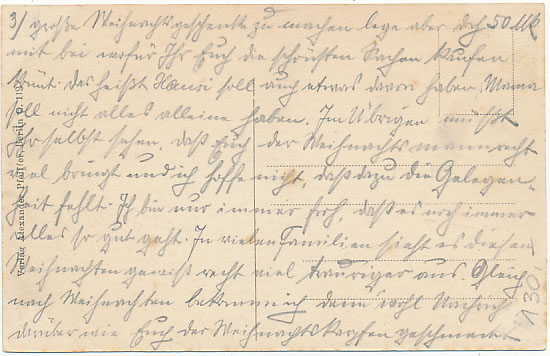 3/ große Weihnachtsgeschenke zu machen lege aber doch 50 Mk
mit bei wofür Ihr Euch die schönsten Sachen kaufen
könnt. das heißt Hansi soll auch etwas davon haben, Mama
soll nicht alles alleine haben. Im Übrigen müßt
Ihr selbst sehen, daß Euch der Weihnachtsmann recht
viel bringt und ich hoffe nicht, daß dazu die Gelegen-
heit fehlt. Ich bin nur immer froh, daß es noch immer
Alles so gut geht. In vielen Familien sieht es diesen
Weihnachten gewiß recht viel trauriger aus. Gleich
nach Weihnachten bekomme ich dann wohl Nachricht
darüber wie Euch der Weihnachtskarpfen geschmeckt
Verlag Alexander Pfeiffer, Berlin
130.-